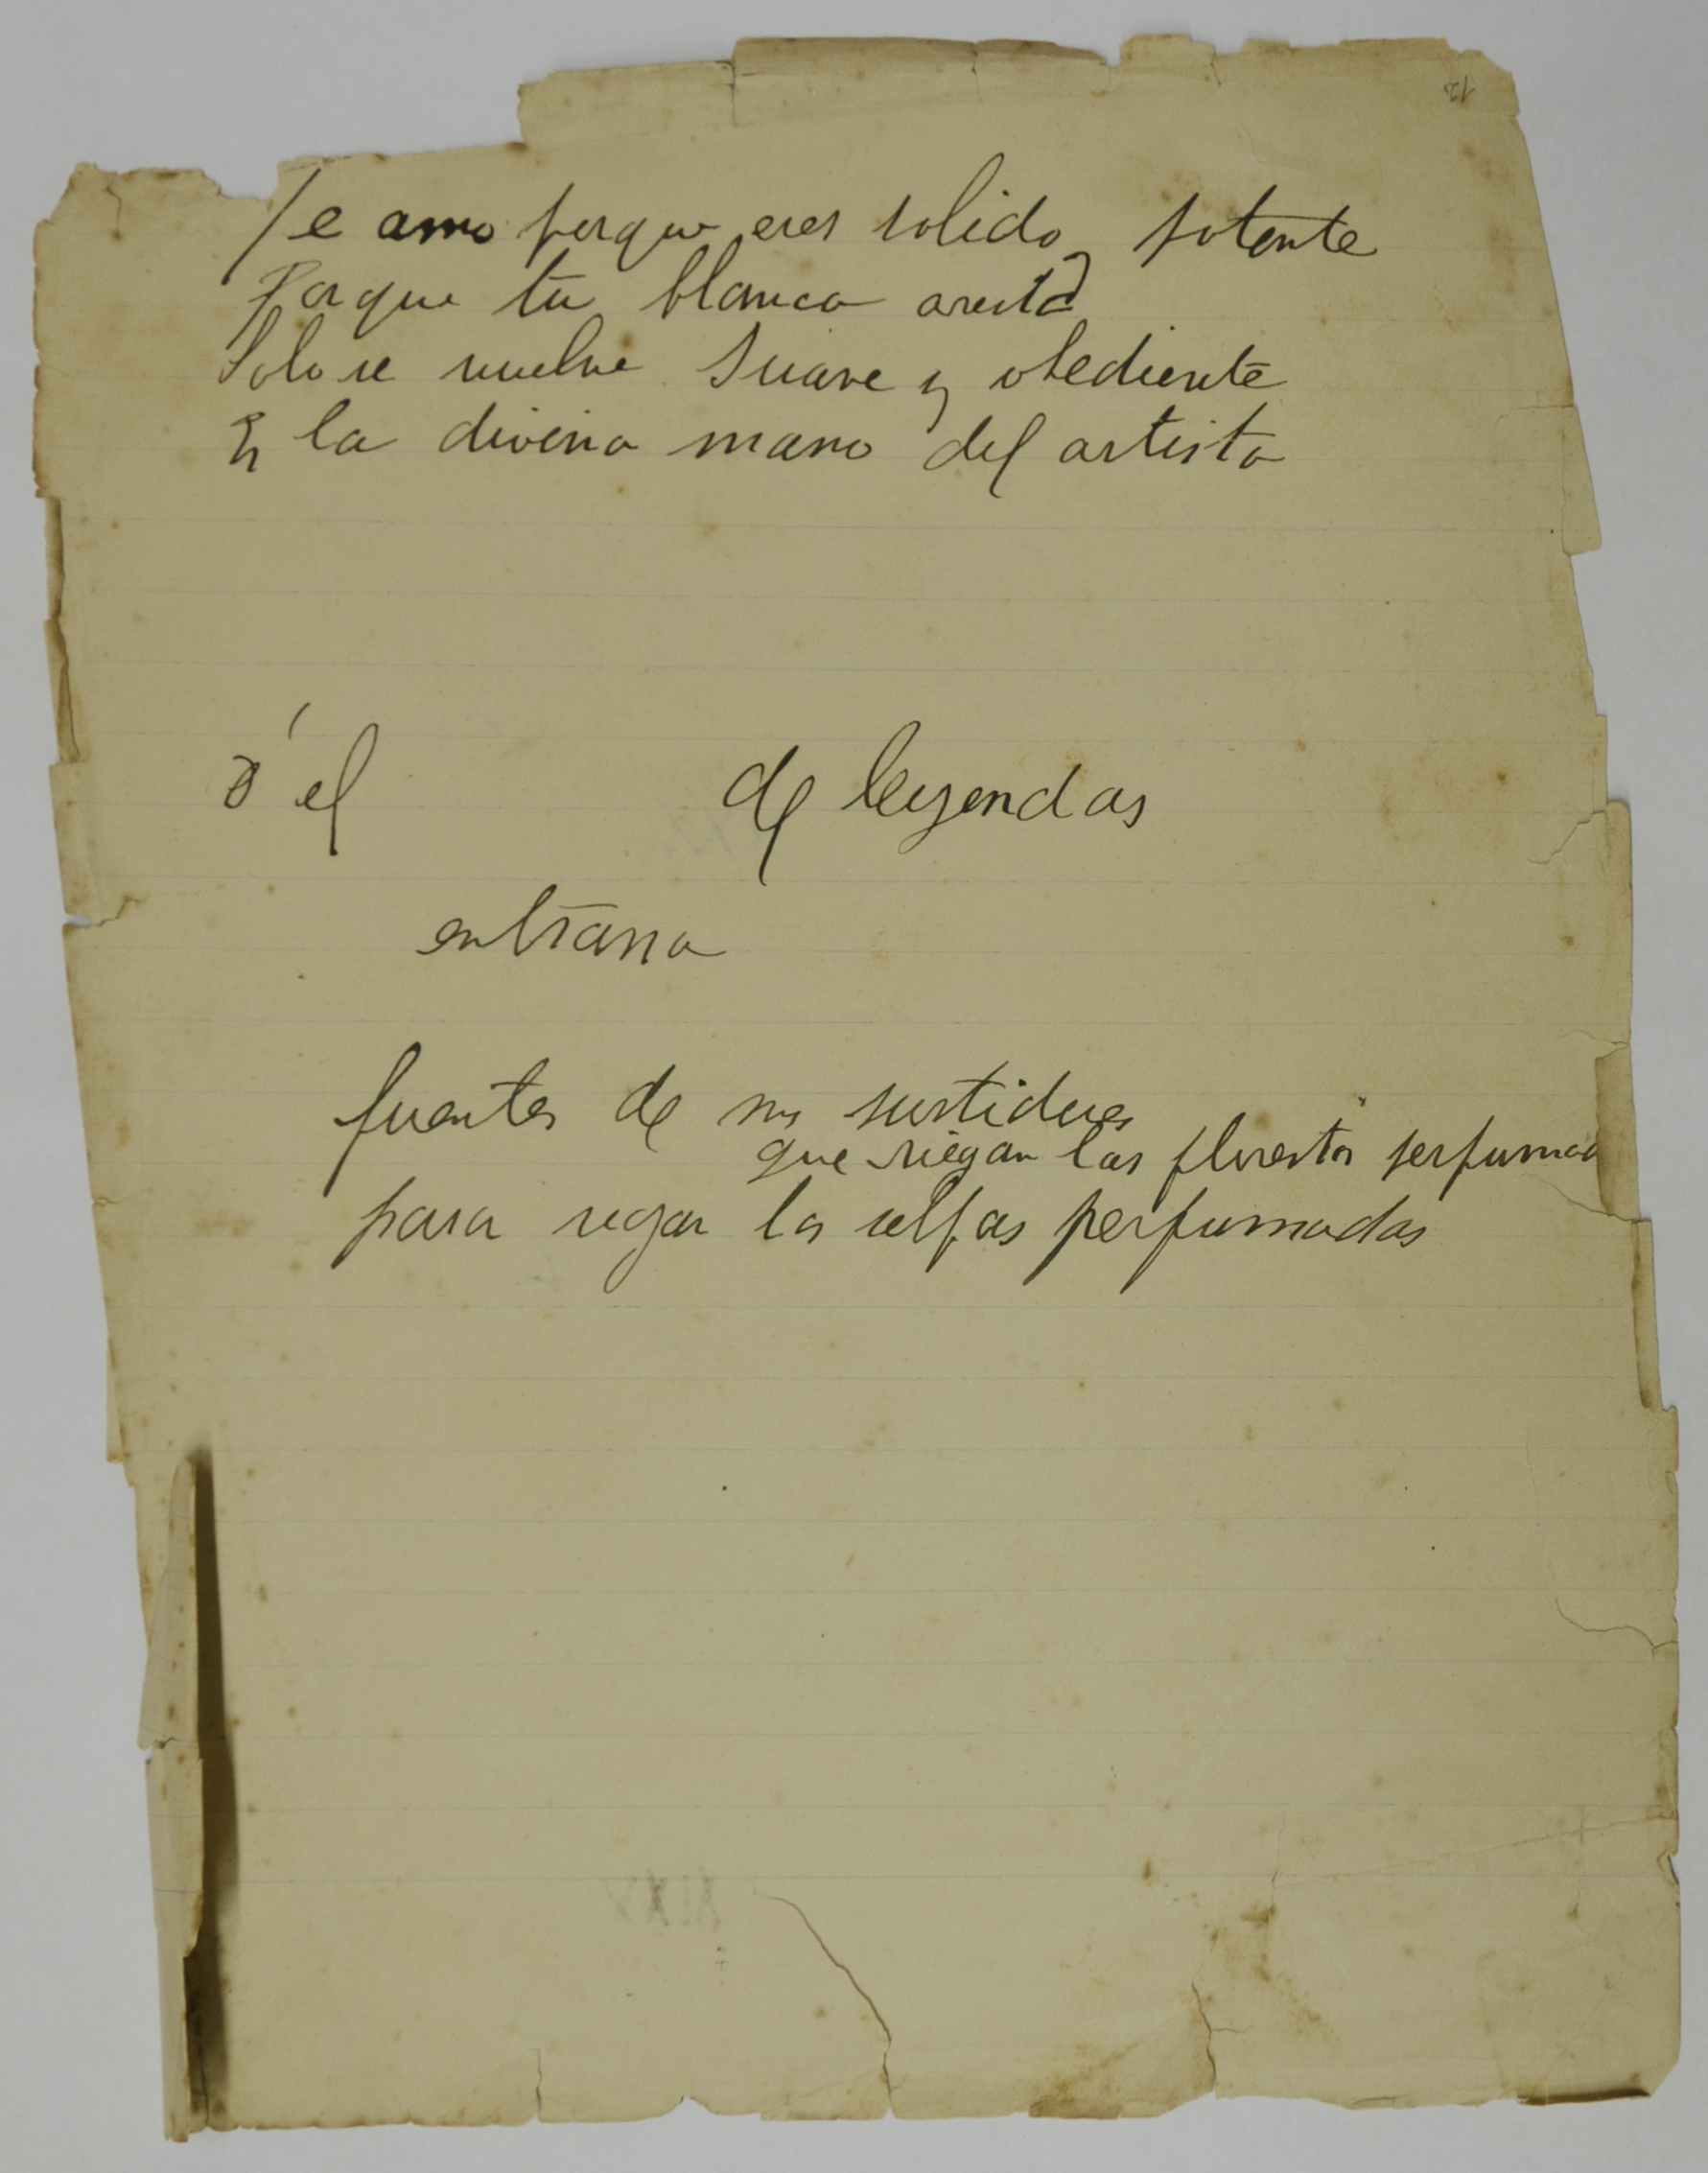 Te amo porque eres solido, potente
Porque tu blanca arista
Solo se vuelve suave y obediente
En la divina mano del artista
ó el de leyendas
entraña
fuentes de sus surtidores
que riegan las florestas perfumad
para regar las selfas perfumadas